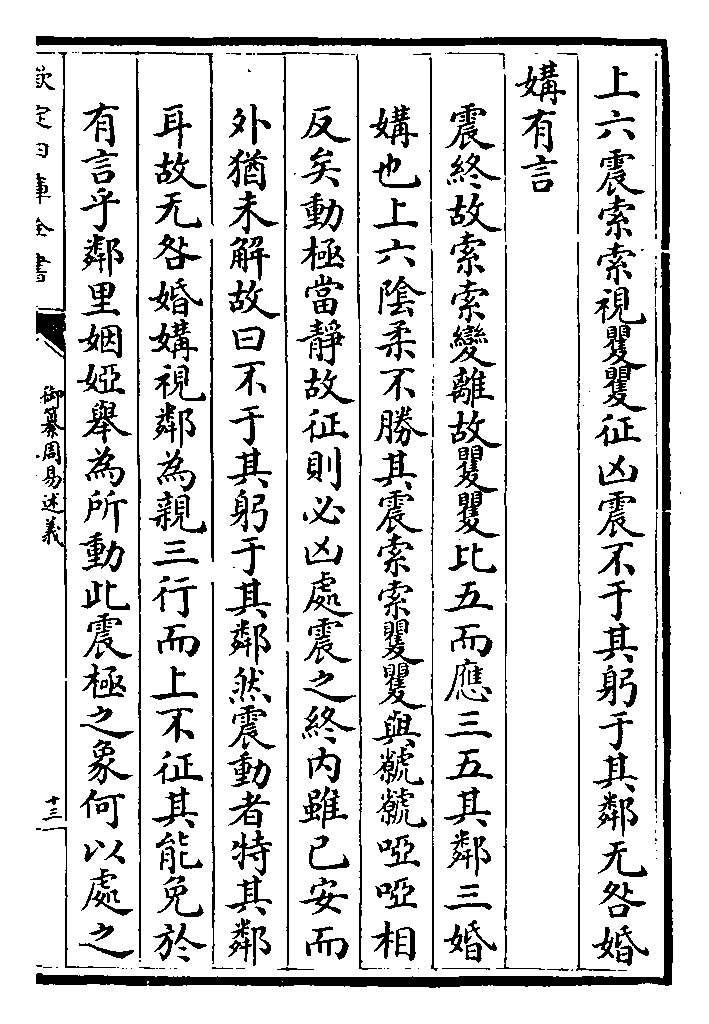 上六震索索視矍矍征凶震不于其躬于其鄰无咎婚
媾有言
震終故索索變離故矍矍比五而應三五其鄰三婚
媾也上六陰柔不勝其震索索矍矍與虩虩啞啞相
反矣動極當靜故征則必凶處震之終内雖已安而
外猶未解故曰不于其躬于其鄰然震動者特其鄰
耳故无咎婚媾視鄰為親三行而上不征其能免於
有言乎鄰里姻婭舉為所動此震極之象何以處之
欽定四庫全書
御纂周易述義
十三